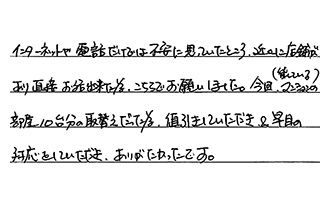 インターネットや電話だけでは不安に思っていたところ、近くに店舗が
あり直接お話出来た為、こちらでお願いしました。今回、
(住んでいる)
部屋10台分の取替えだった為、値引きしていただき又早目の
対応をしていただき、ありがたかったです。